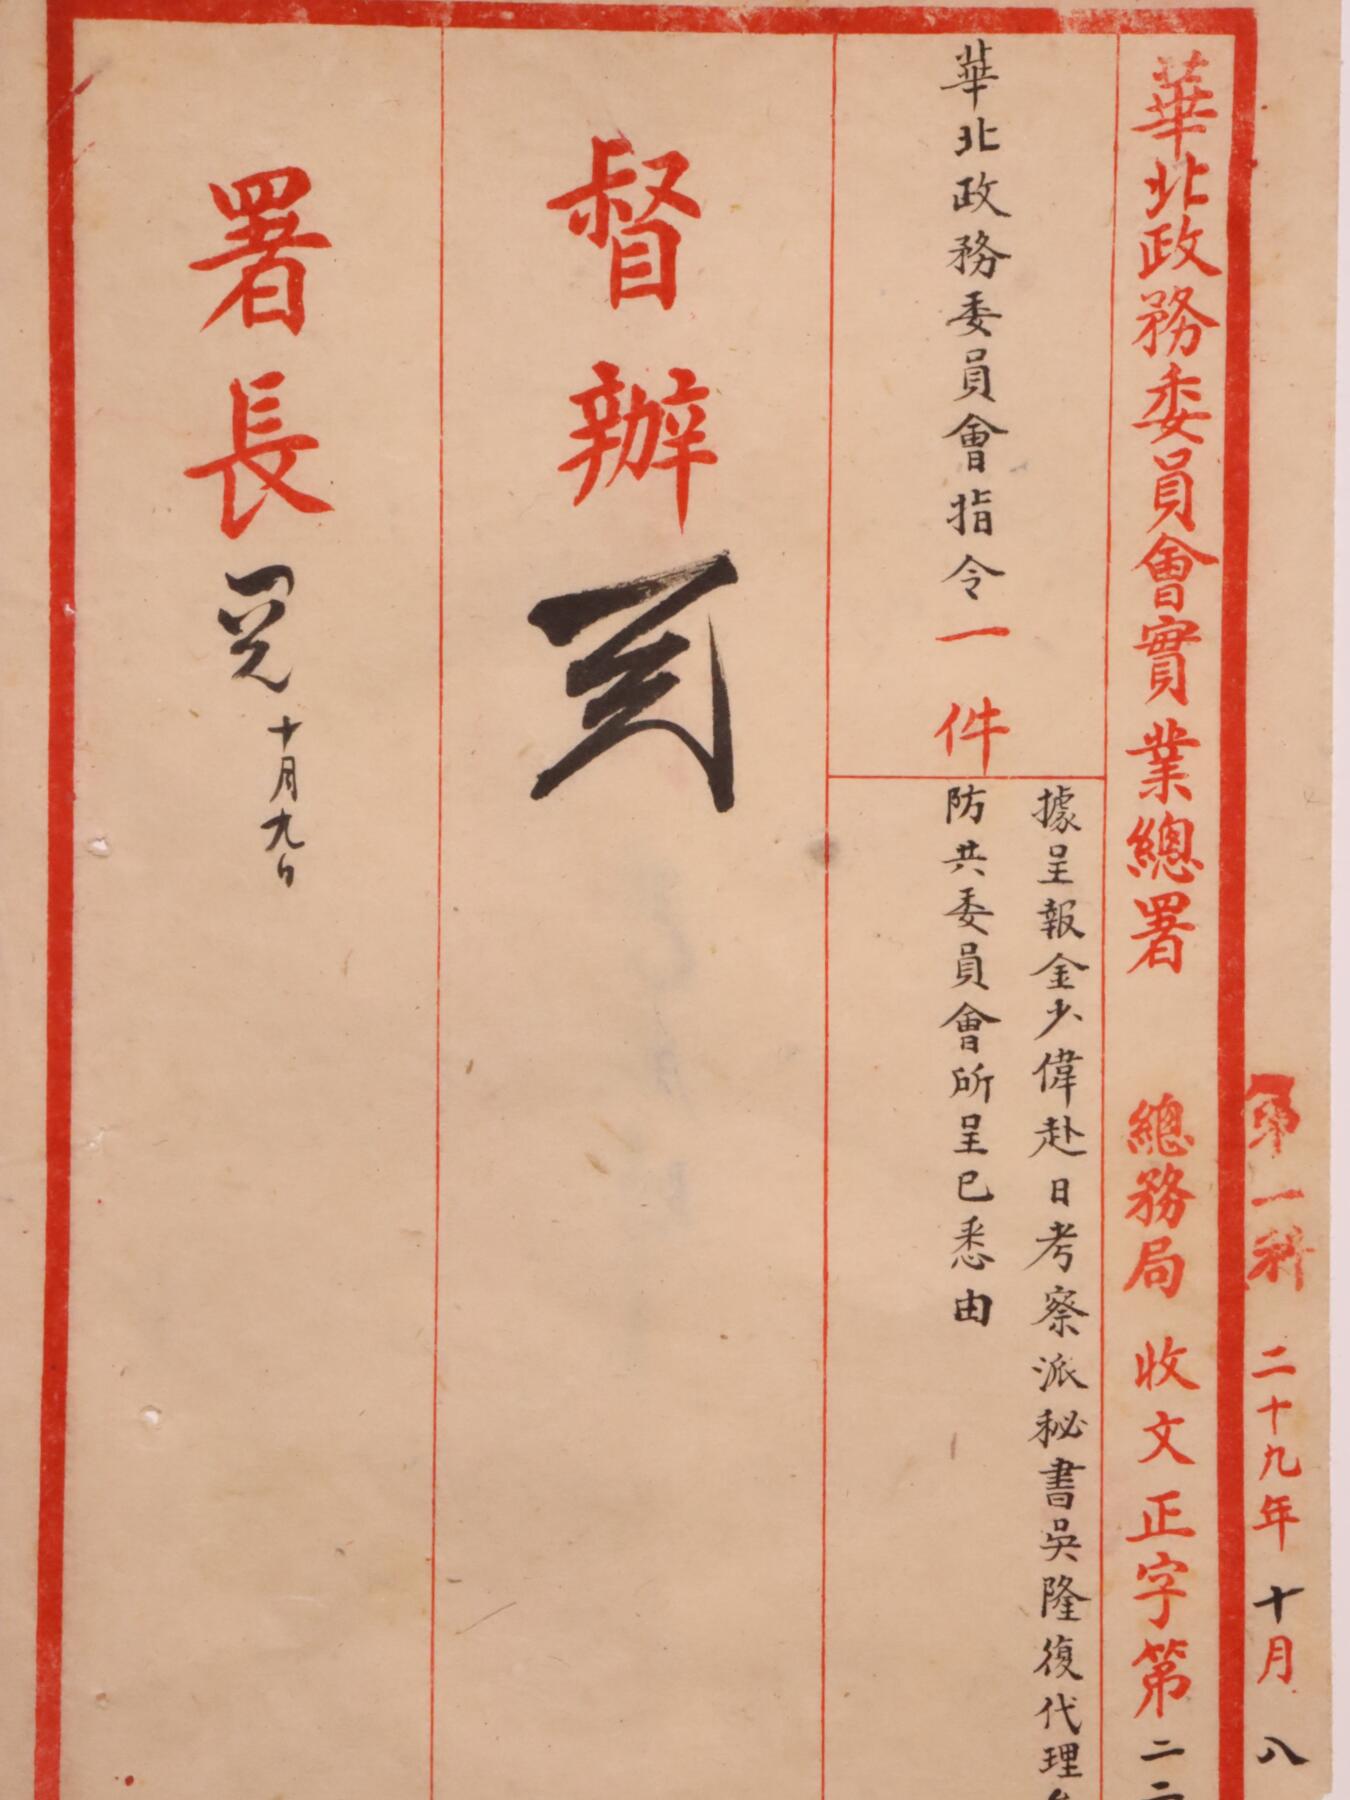 第一科 二十九年十月八
華北政務委員會實業總署 總務局收文正字第二二
華北政務委員會指令一件
據呈報金少偉赴日考察派秘書吳隆復代理
防共委員會所呈已悉由
督辦
署長
十月九日